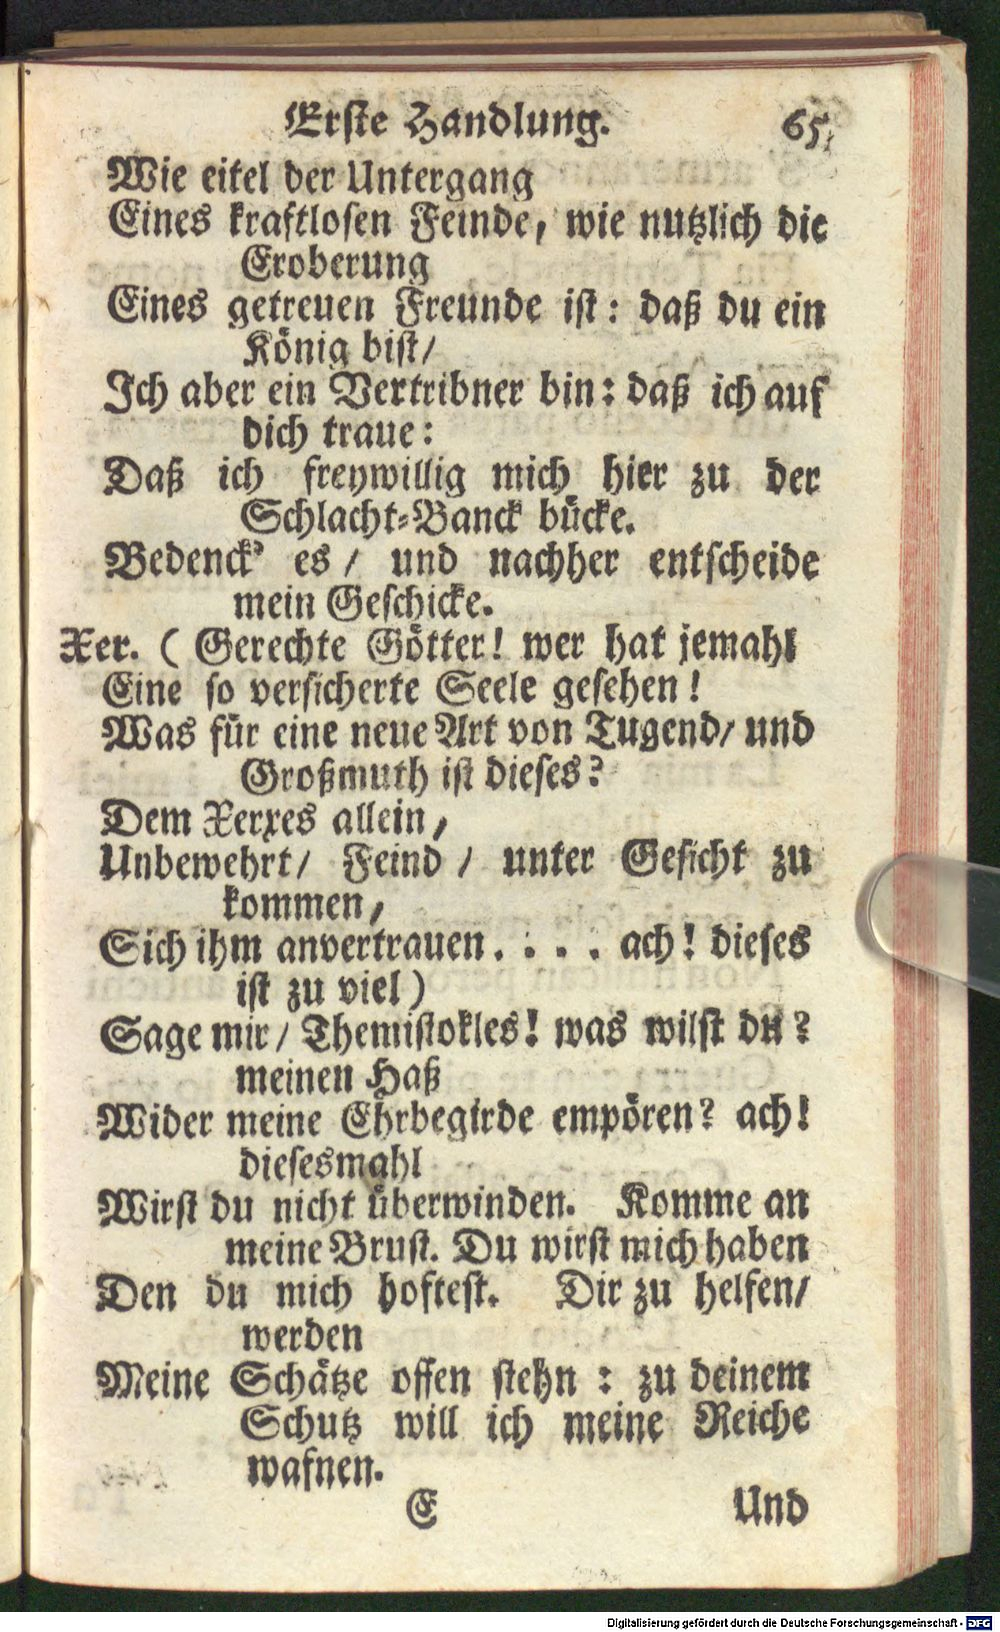 Erste Handlung. 65.
Wie eitel der Untergang
Eines kraftlosen Feinde, wie nutzlich die
Eroberung
Eines getreuen Freunde ist: daß du ein
König bist/
Ich aber ein Vertribner bin: daß ich auf
dich traue:
Daß ich freywillig mich hier zu der
Schlacht-Banck bücke.
Bedenck' es / und nachher entscheide
mein Geschicke.
Xer. ( Gerechte Götter! wer hat jemahl
Eine so versicherte Seele gesehen!
Was für eine neue Art von Tugend/ und
Großmuth ist dieses?
Dem Xerxes allein,
Unbewehrt/ Feind / unter Gesicht zu
kommen,
Sich ihm anvertrauen. . . . ach! dieses
ist zu viel)
Sage mir/ Themistokles! was wilst du?
meinen Haß
Wider meine Ehrbegirde empören? ach!
diesesmahl
Wirst du nicht überwinden. Komme an
meine Brust. Du wirst mich haben
Den du mich hoftest. Dir zu helfen/
werden
Meine Schätze offen stehn : zu deinem
Schutz will ich meine Reiche
wafnen.
E Und
Digitalisierung gefördert durch die Deutsche Forschungsgemeinschaft - DFG